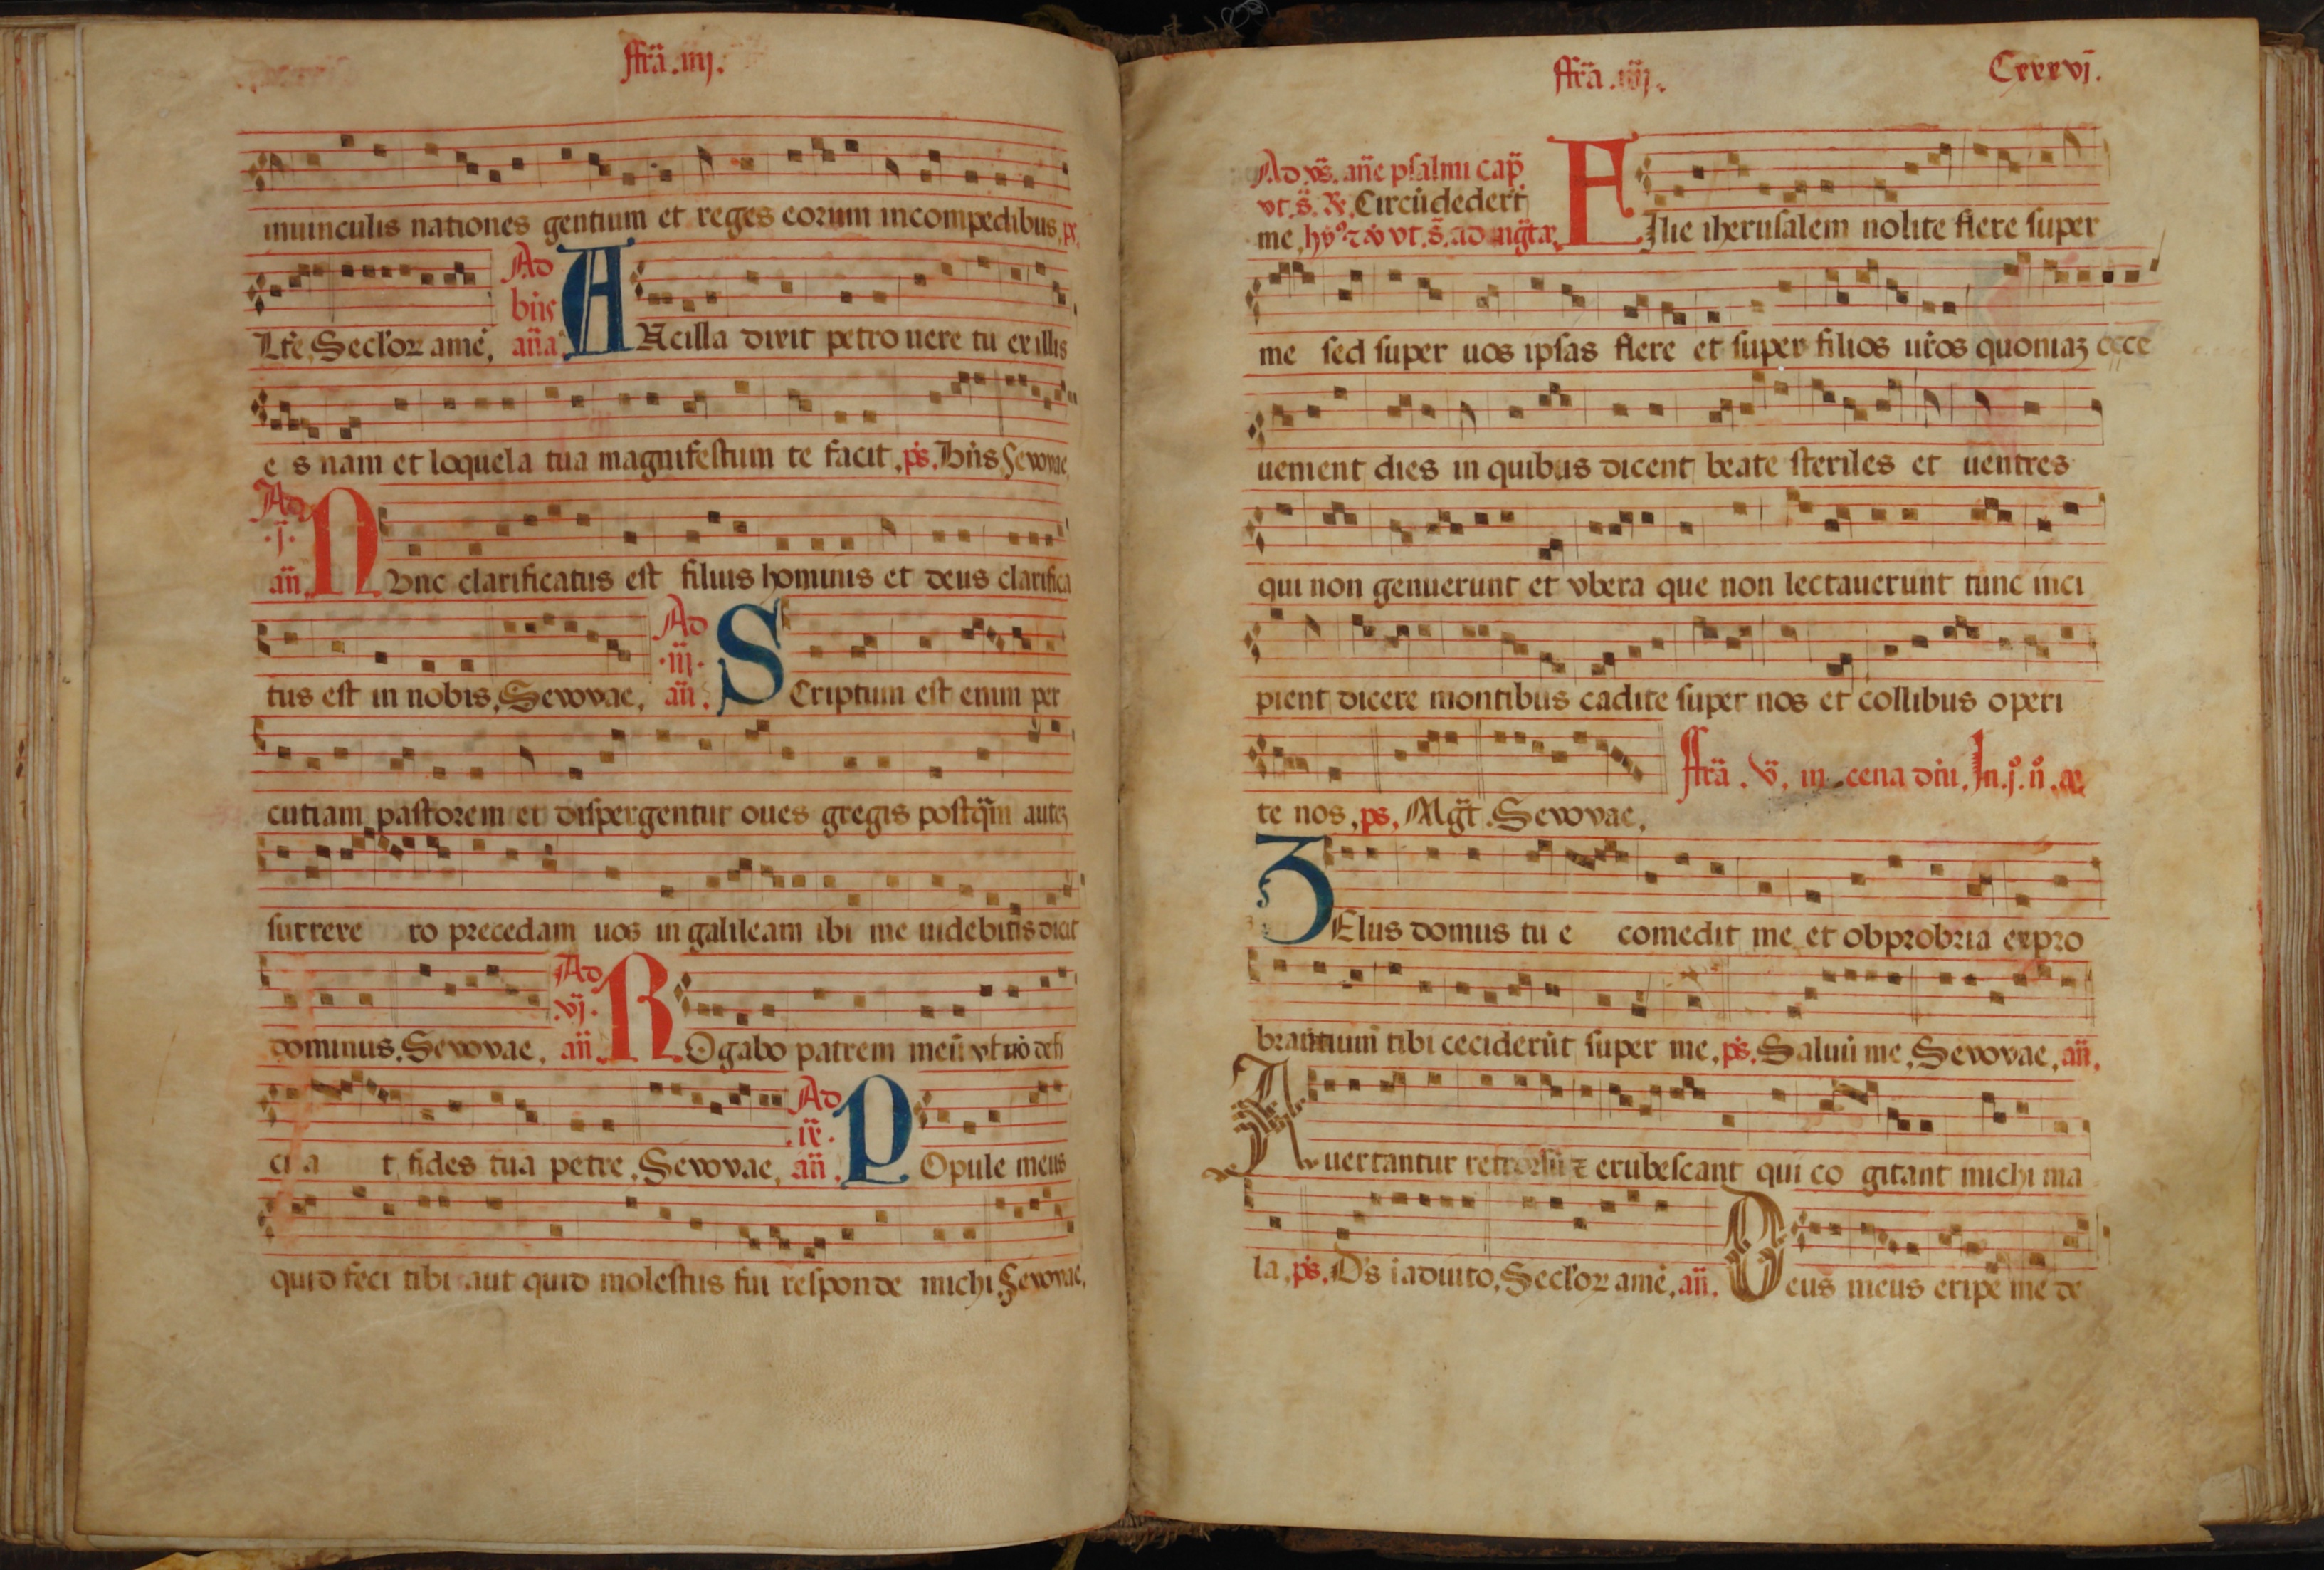 ffr̄a .iiij.
inuinculis nationes gentium et reges eorum incompedibus, ps,
Lr̄e, Secl'oꝝ amē, Ad bn̄s an̄a ANcilla dixit petro uere tu ex illis
e s nam et loquela tua magnifestum te facit, ps, bn̄s Sevovae
Ad .j. an̄. NVnc clarificatus est filius hominis et deus clarifica
tus est in nobis, Sevovae, Ad .iij. an̄. SCriptum est enim per
cutiam pastorem et dispergentur oues gregis postq̄m auteꝫ
surrexe ro precedam uos in galileam ibi me uidebitis dicit
dominus, Sevovae, Ad .vj. an̄. ROgabo patrem meū vt nō defi
ci a t fides tua petre, Sevovae, Ad .ix. an̄. POpule meus
quid feci tibi aut quid molestus fui responde michi, Sevovae,
ffr̄a .iiij. Cxxxvj.
Ad vs̄. an̄e psalmi cap̄.
vt. s̄. ꝶ. Circūdederūt
me, vt. s̄. ad mḡt. FIlie iherusalem nolite flere super
me sed super uos ipsas flere et super filios ur̄os quoniaꝫ ecce
uenient dies in quibus dicent beate steriles et uentres
qui non genuerunt et vbera que non lectauerunt tunc inci
pient dicere montibus cadite super nos et collibus operi
te nos, ps, Mḡt. Sevovae, ffr̄a . v̄, in cena dn̄i, In. j. n̄. an̄.
ZElus domus tu e comedit me et obprobria expro
brantium tibi ceciderūt super me, ps, Saluū me, Sevovae, an̄,
Auertantur retrorsū ⁊ erubescant qui co gitant michi ma
la, ps, D's ī adiuto, Secl'oꝝ amē, an̄, Deus meus eripe me de